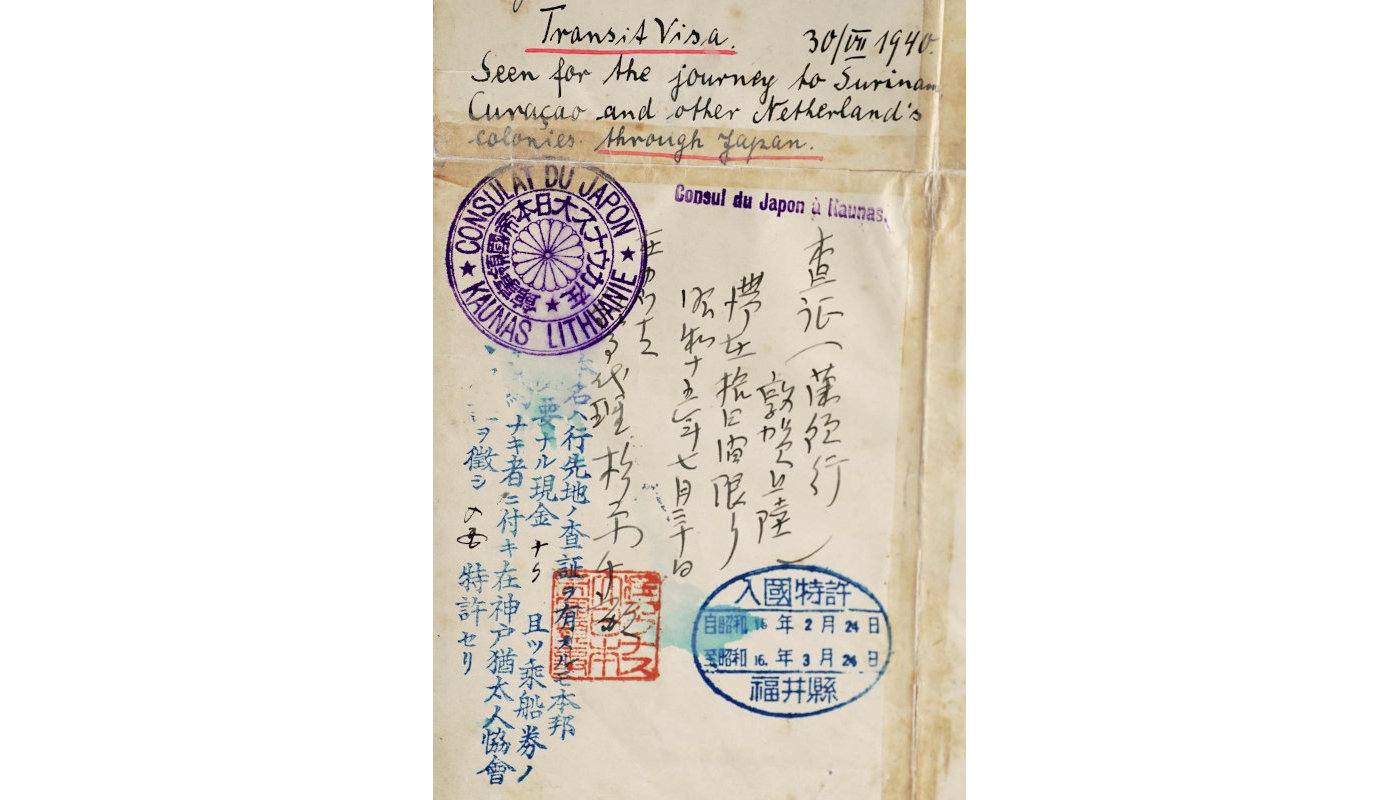 Transit Visa.
30/VII 1940.
Seen for the journey to Surinam
Curaçao and other Netherland's
colonies through Japan.
CONSULAT DU JAPON
★ KAUNAS LITHUANIE ★
在カウナス大日本帝國領事館
Consul du Japon à Kaunas.
查証(蘭領行
敦賀上陸)
滞在拾日間限リ
昭和十五年七月三十日
領事代理杉原千畝
名ハ行先地ノ査証ヲ有スルモ本邦
要ナル現金ナク且ツ乗船券ノ
ナキ者ニ付キ在神戸猶太人協會
ヲ徴シ
特許セリ
入國特許
自昭和16年2月24日
至昭和16.年3月24日
福井縣